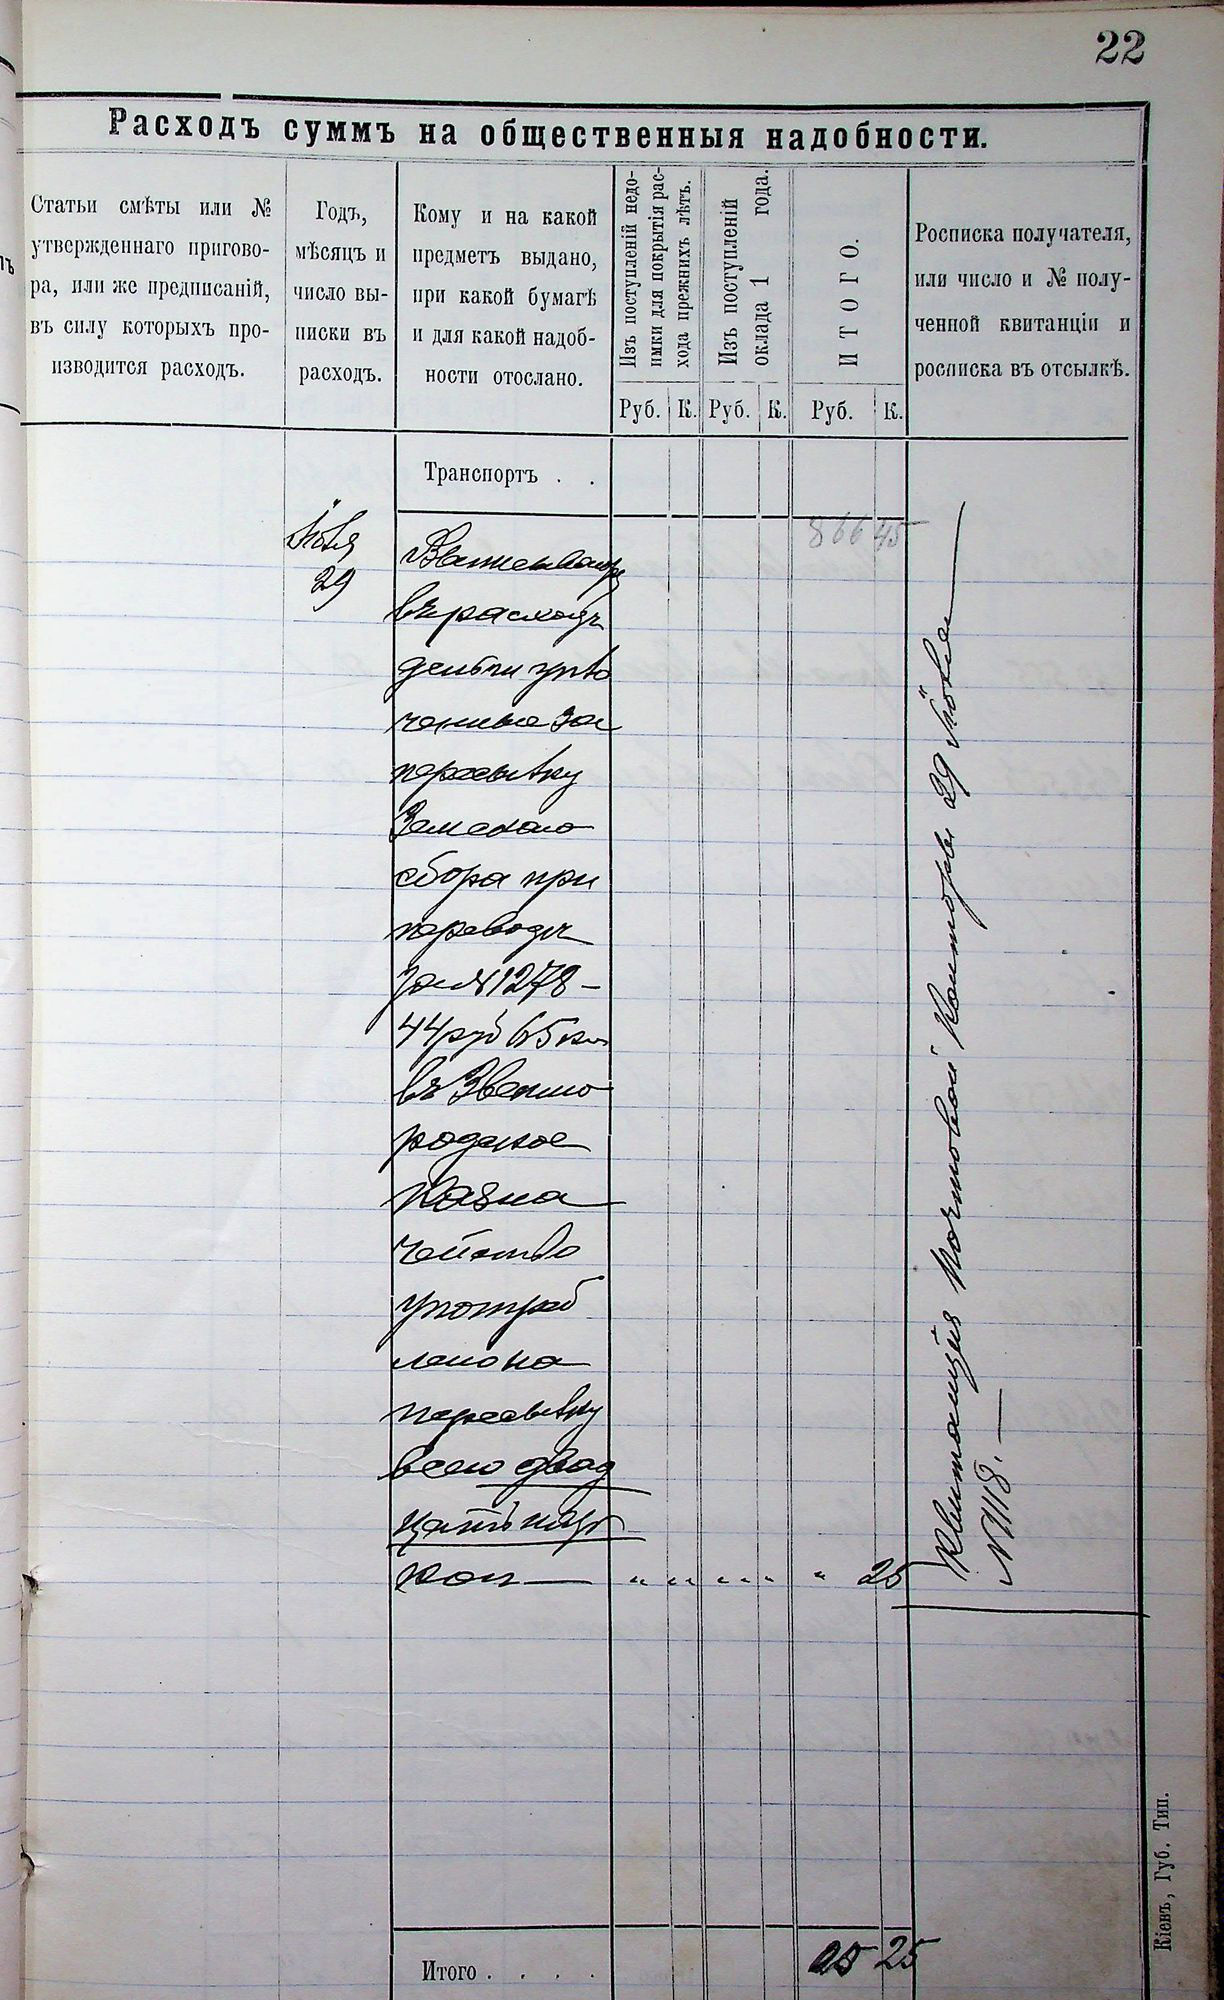 22
Расходъ суммъ на общественныя надобности.
Статьи смѣты или №
утвержденнаго пригово-
ра, или же предписаній,
въ силу которыхъ про-
изводится расходъ.
Годъ,
мѣсяцъ и
число вы-
писки въ
расходъ.
Кому и на какой
предметъ выдано,
при какой бумагѣ
и для какой надоб-
ности отослано.
Изъ поступленій недо-
имки для покрытія рас-
хода прежнихъ лѣтъ.
Изъ поступленій
оклада 1 года.
ИТОГО.
Росписка получателя,
или число и № полу-
ченной квитанціи и
росписка въ отсылкѣ.
Руб. К. Руб. К. Руб. К.
Транспортъ . .
866 45
Іюля
29
въ расходъ
деньги упло
ченные за
пересылку
Земскаго
сбора при
переводѣ
за № 1278 –
44 руб 65 ко
въ Звенио
родское
Казна
чейство
употреб
лено на
пересылку
всего двад
цать пять
коп — „ „ „ „ „ 25
Квитанція Почтовой Конторы 29 Іюля —
№ 1118. —
Итого . . . . 25 25
Кіевъ, Губ. Тип.